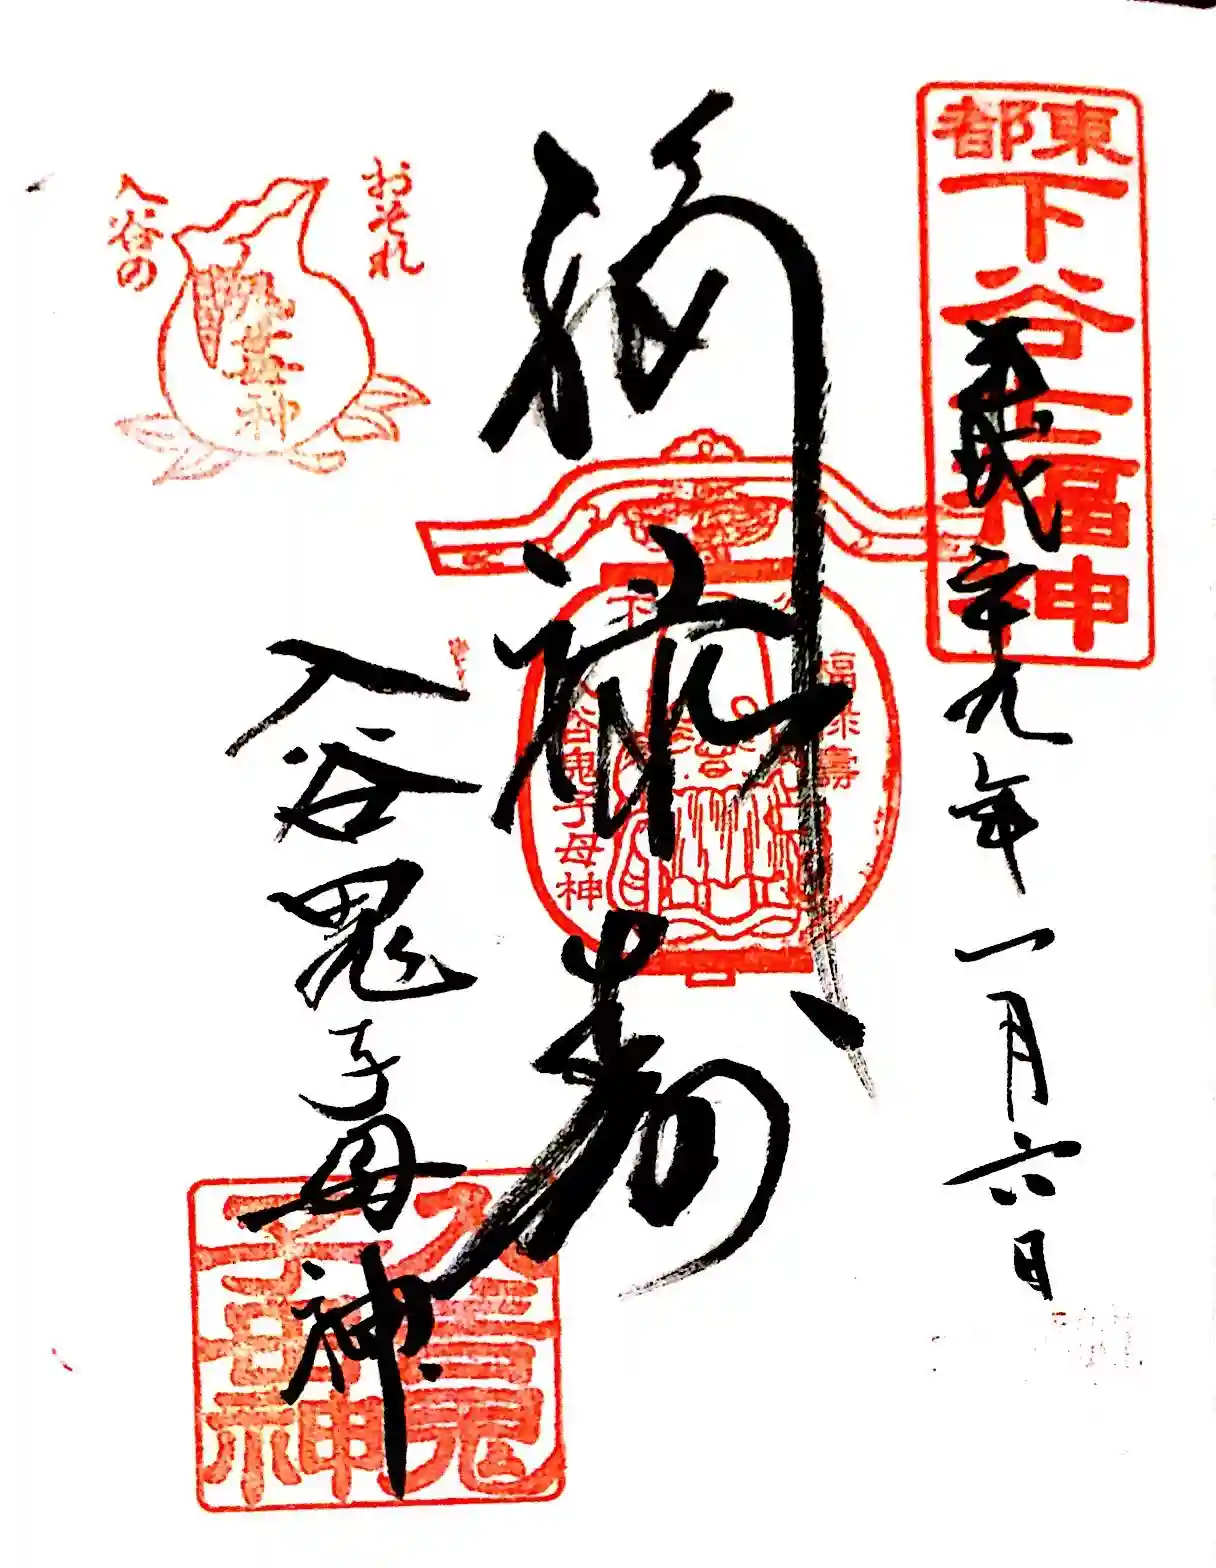 東都
下谷七福神
平成二十九年一月六日
福禄寿
福禄壽
入谷鬼子母神
入谷鬼子母神
おそれ
入谷の
鬼子母神
入谷鬼
子母神